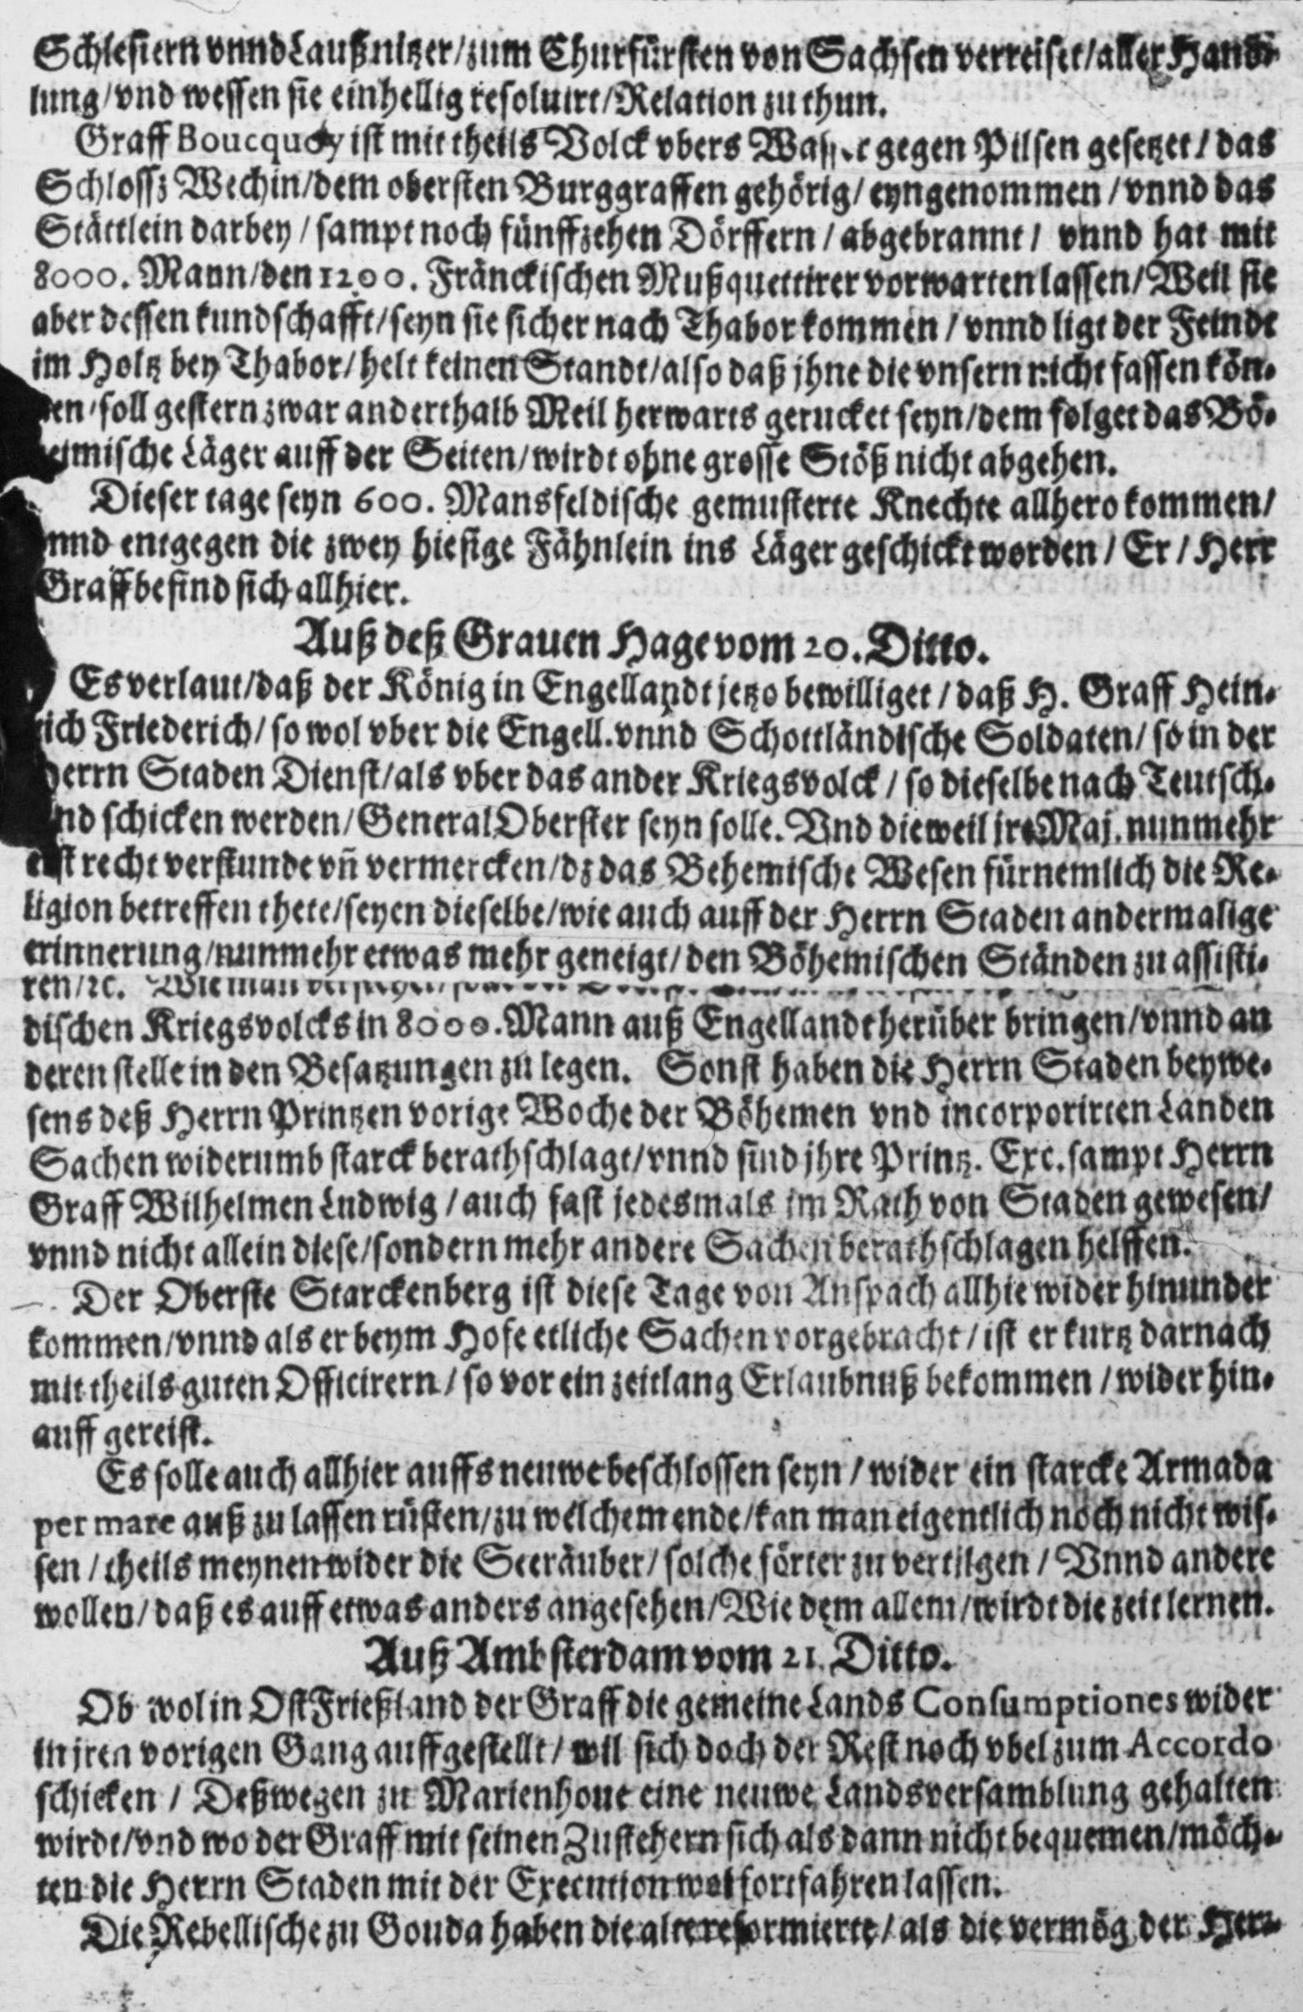 Schlesiern vnnd Laußnitzer/zum Churfürsten von Sachsen verreiset/aller Hand-
lung/vnd wessen sie einhellig resoluirt/Relation zu thun.
Graff Boucquoy ist mit theils Volck vbers Wasser gegen Pilsen gesetzet/das
Schlossz Wechin/dem obersten Burggraffen gehörig/eyngenommen/vnnd das
Stättlein darbey/sampt noch fünffzehen Dörffern/abgebrannt/ vnnd hat mit
8000. Mann/den 1200. Fränckischen Mußquettirer vorwarten lassen/Weil sie
aber dessen kundschafft/seyn sie sicher nach Thabor kommen/vnnd ligt der Feindt
im Holtz bey Thabor/helt keinen Standt/also daß jhne die vnsern nicht fassen kön-
en/soll gestern zwar anderthalb Meil herwarts gerucket seyn/dem folget das Bö-
eimische Läger auff der Seiten/wirdt ohne grosse Stöß nicht abgehen.
Dieser tage seyn 600. Mansfeldische gemusterte Knechte allhero kommen/
nnd entgegen die zwey hiesige Fähnlein ins Läger geschickt worden/Er/Herr
Graff befind sich allhier.
Auß deß Grauen Hage vom 20. Ditto.
Es verlaut/daß der König in Engellandt jetzo bewilliget/daß H. Graff Hein-
rich Friederich/so wol vber die Engell. vnnd Schottländische Soldaten/so in der
Herrn Staden Dienst/als vber das ander Kriegsvolck/so dieselbe nach Teutsch-
nd schicken werden/General Oberster seyn solle. Vnd dieweil jre Maj. nunmehr
erst recht verstunde vn̄ vermercken/dz das Behemische Wesen fürnemlich die Re-
ligion betreffen thete/seyen dieselbe/wie auch auff der Herrn Staden andermalige
erinnerung/nunmehr etwas mehr geneigt/den Böhemischen Ständen zu assisti-
ren/ꝛc. Wie man
dischen Kriegsvolcks in 8000. Mann auß Engellandt herüber bringen/vnnd an
deren stelle in den Besatzungen zu legen. Sonst haben die Herrn Staden beywe-
sens deß Herrn Printzen vorige Woche der Böhemen vnd incorporirten Landen
Sachen widerumb starck berathschlagt/vnnd sind jhre Printz. Exc. sampt Herrn
Graff Wilhelmen Ludwig/auch fast jedesmals im Rath von Staden gewesen/
vnnd nicht allein diese/sondern mehr andere Sachen berathschlagen helffen.
Der Oberste Starckenberg ist diese Tage von Anspach allhie wider hinunder
kommen/vnnd als er beym Hofe etliche Sachen vorgebracht/ist er kurtz darnach
mit theils guten Officirern/so vor ein zeitlang Erlaubnuß bekommen/wider hin-
auff gereist.
Es solle auch allhier auffs neuwe beschlossen seyn/wider ein starcke Armada
per mare auß zu lassen rüsten/zu welchem ende/kan man eigentlich noch nicht wis-
sen/theils meynen wider die Seeräuber/solche förter zu vertilgen/Vnnd andere
wollen/daß es auff etwas anders angesehen/Wie dem allem/wirdt die zeit lernen.
Auß Ambsterdam vom 21. Ditto.
Ob wol in OstFrießland der Graff die gemeine Lands Consumptiones wider
in jren vorigen Gang auffgestellt/wil sich doch der Rest noch vbel zum Accordo
schicken/Deßwegen zu Marienhoue eine neuwe Landsversamblung gehalten
wirdt/vnd wo der Graff mit seinen Zustehern sich als dann nicht bequemen/möch-
ten die Herrn Staden mit der Execution wol fortfahren lassen.
Die Rebellische zu Gouda haben die alte reformierte/als die vermög der Her-